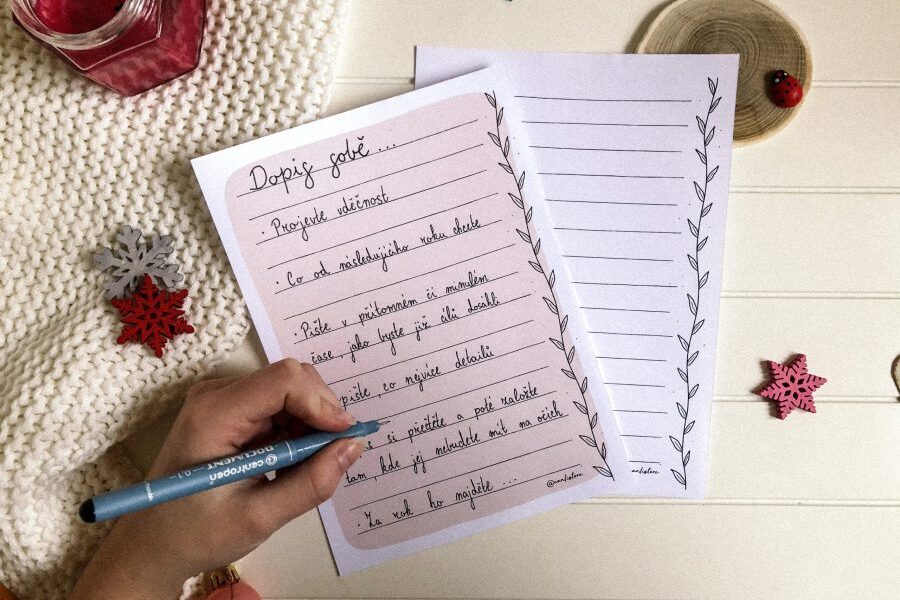 Dopis sobě ...
· Projevte vděčnost
· Co od následujícího roku chcete
· Pište v přítomném či minulém
čase, jako byste již cílů dosáhli
pište, co nejvíce detailů
s si přečtěte a poté založte
tam, kde jej nebudete mít na očích.
· Za rok ho najděte ...
centropen
DOCUMENT